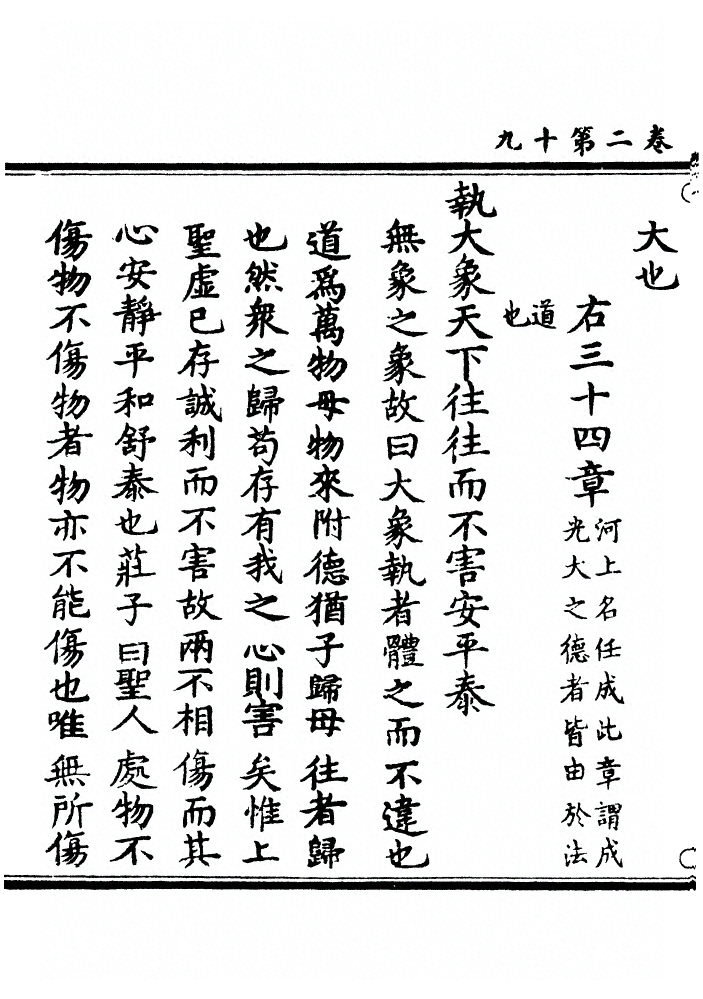 卷二第十九
大也
右三十四章
河上名任成此章謂成
光大之德者皆由於法
道
也
執大象天下往往而不害安平泰
無象之象故曰大象執者體之而不違也
道爲萬物母物來附德猶子歸母往者歸
也然衆之歸苟存有我之心則害矣惟上
聖虛已存誠利而不害故兩不相傷而其
心安靜平和舒泰也莊子曰聖人處物不
傷物不傷物者物亦不能傷也唯無所傷